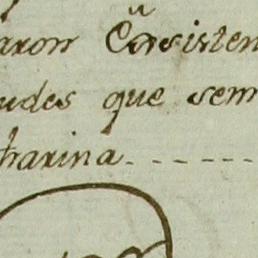 aron Casisten
udes que sem
harina